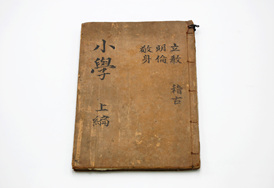 立教
明倫
敬身
稽古
小學
上編